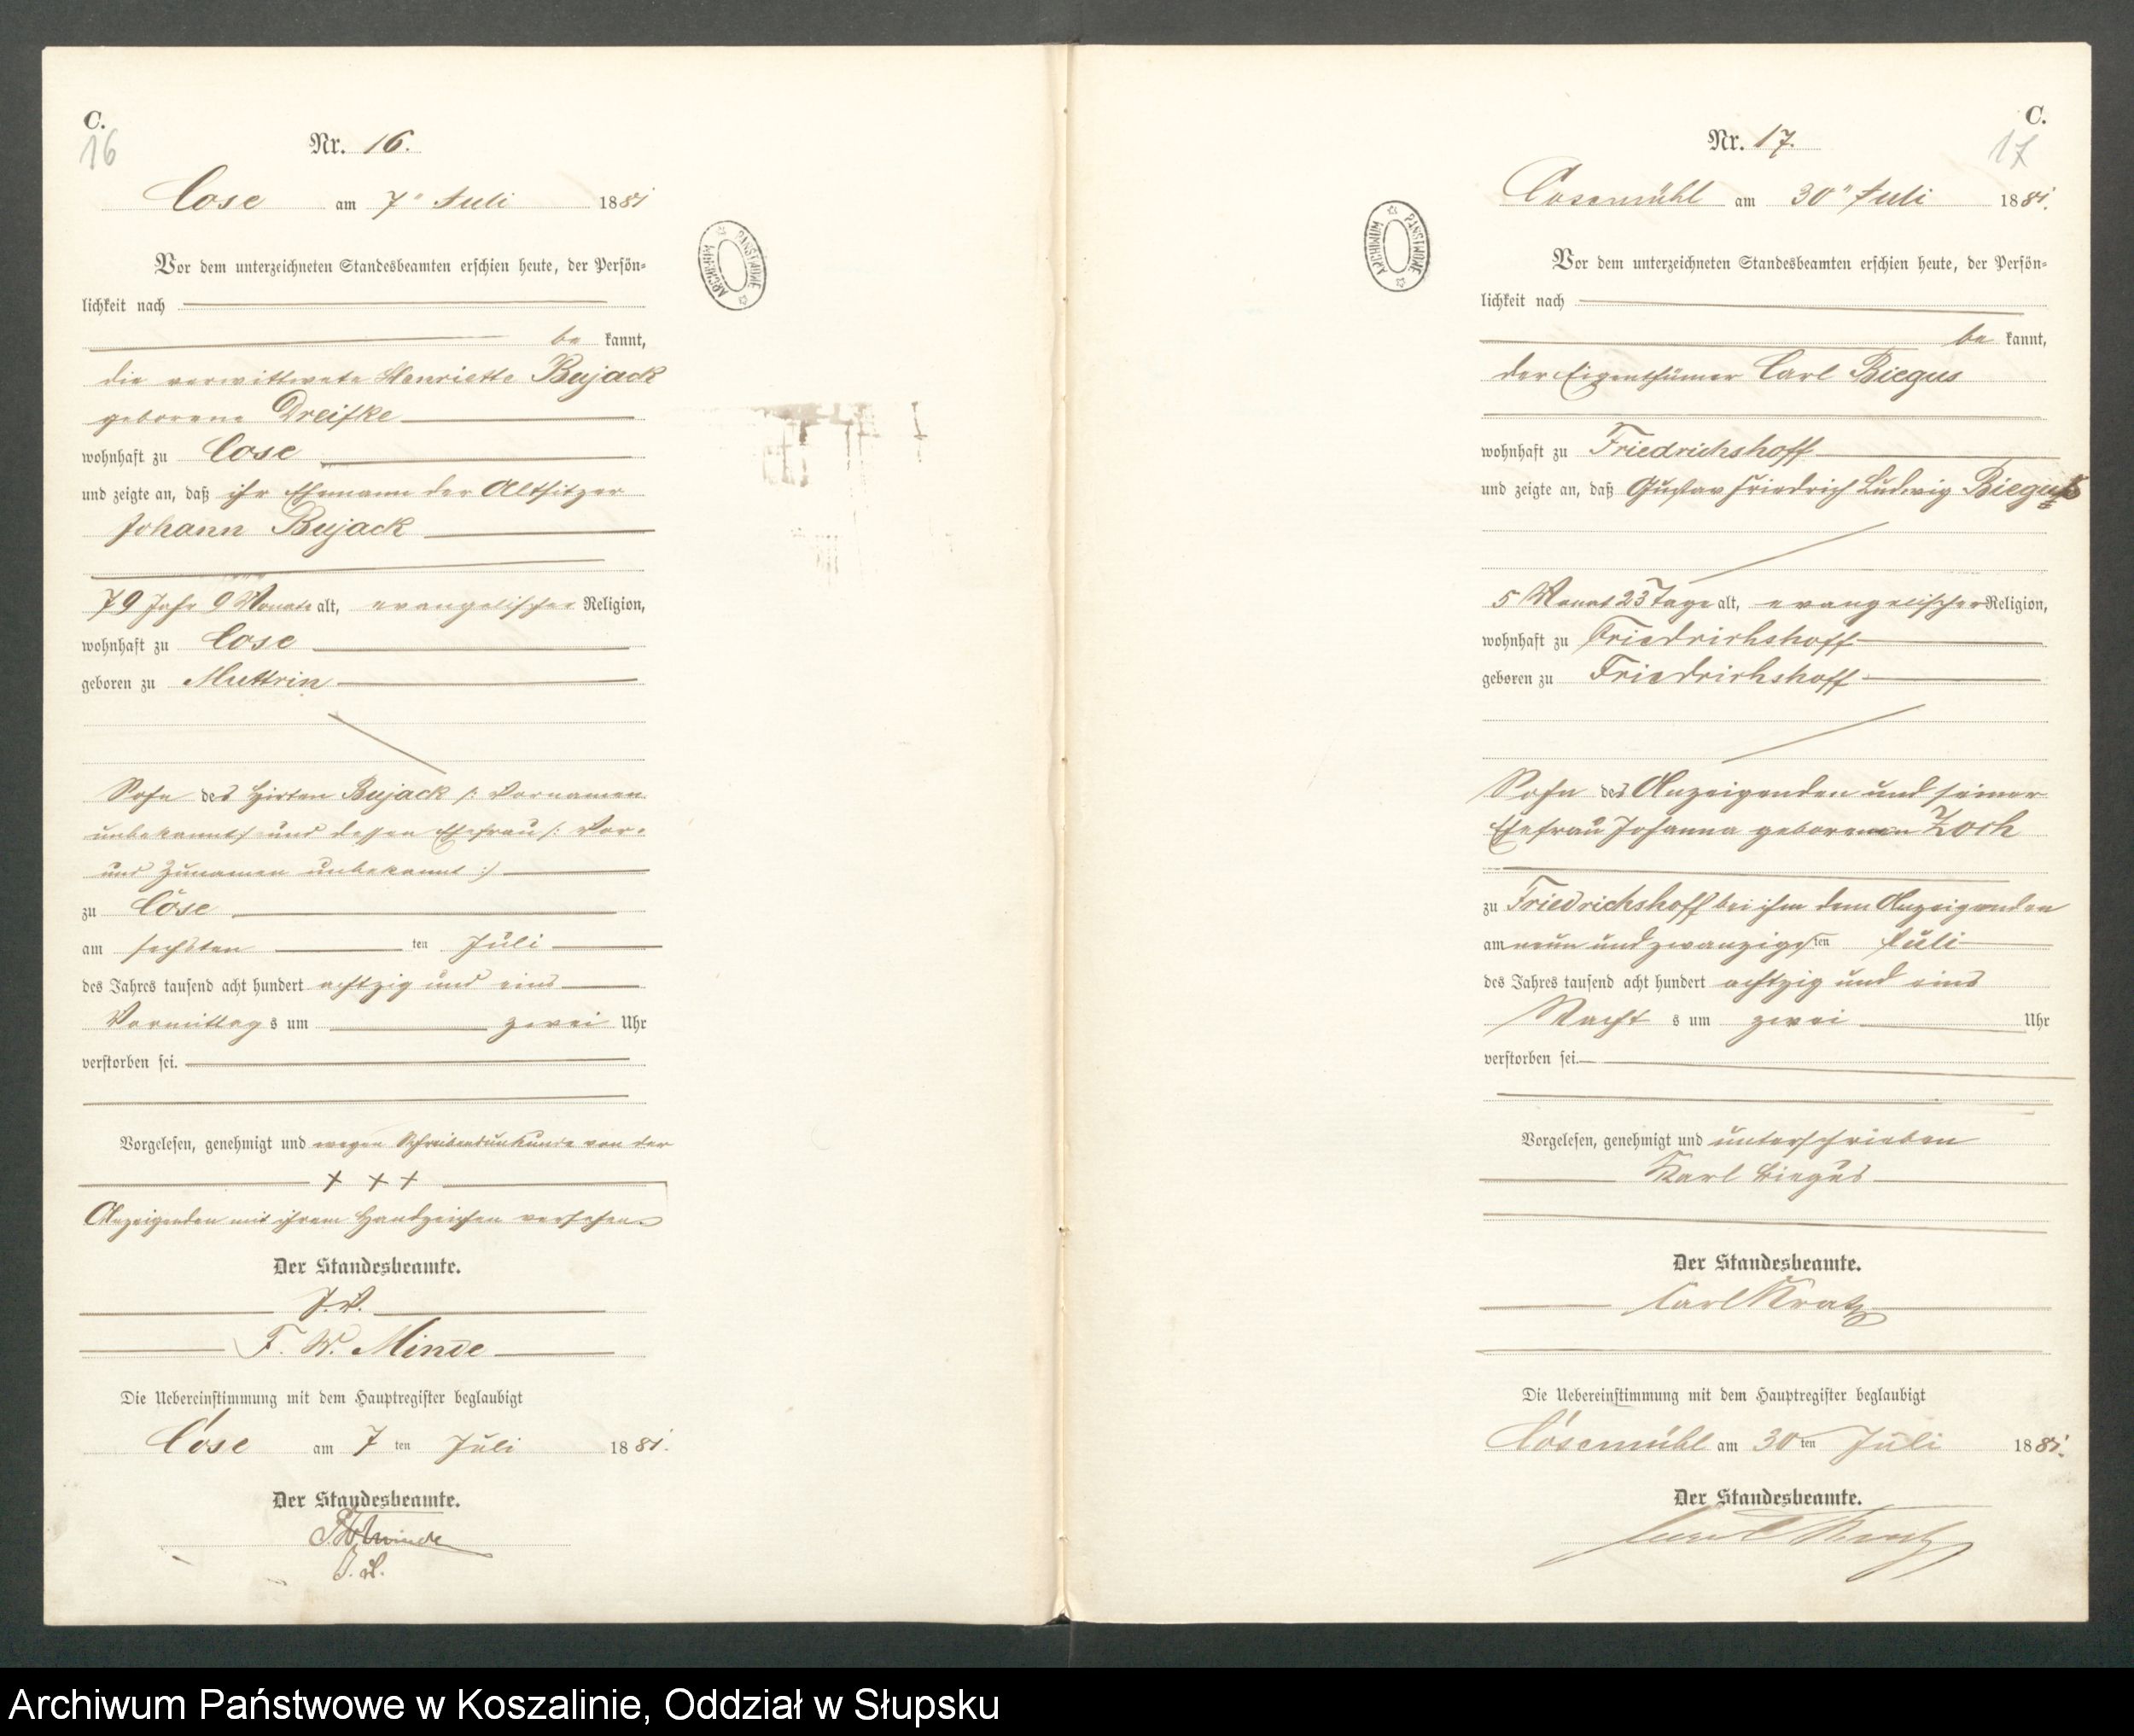 C.
16
Nr. 16.
Cose am 7" Juli 1881
Vor dem unterzeichneten Standesbeamten erschien heute, der Persön-
lichkeit nach
be kannt,
die verwittwete Henriette Bujack
geborene Dreifke
wohnhaft zu Cose
und zeigte an, daß ihr Ehemann der Altsitzer
Johann Bujack
79 Jahr 9 Monate alt, evangelischer Religion,
wohnhaft zu Cose
geboren zu Muttrin
Sohn des Hirten Bujack /: Vornamen
unbekannt :/ und dessen Ehefrau /: Vor-
und Zunamen unbekannt :/
zu Cose
am sechsten ten Juli
des Jahres tausend acht hundert achtzig und eins
Vormittag s um zwei Uhr
verstorben sei.
Vorgelesen, genehmigt und wegen Schreibensunkunde von der
+ + +
Anzeigenden mit ihrem Handzeichen versehen.
Der Standesbeamte.
J. V.
F. W. Minde
Die Uebereinstimmung mit dem Hauptregister beglaubigt
Cose am 7 ten Juli 1881.
Der Standesbeamte.
F W Minde
J. V.
ARCHIWUM PAŃSTWOWE
C.
17
Nr. 17.
Cosemühl am 30" Juli 1881.
Vor dem unterzeichneten Standesbeamten erschien heute, der Persön-
lichkeit nach
be kannt,
der Eigenthümer Carl Biegus
wohnhaft zu Friedrichshoff
und zeigte an, daß Gustav Friedrich Ludwig Biegus
5 Monat 23 Tage alt, evangelischer Religion,
wohnhaft zu Friedrichshoff
geboren zu Friedrichshoff
Sohn des Anzeigenden und seiner
Ehefrau Johanna geborenen Zoch
zu Friedrichshoff bei ihm dem Anzeigenden
am neun und zwanzigsten Juli
des Jahres tausend acht hundert achtzig und eins
Nacht s um zwei Uhr
verstorben sei.
Vorgelesen, genehmigt und unterschrieben
Karl Biegus
Der Standesbeamte.
Carl Kratz
Die Uebereinstimmung mit dem Hauptregister beglaubigt
Cosemühl am 30 ten Juli 1881.
Der Standesbeamte.
Carl Kratz
ARCHIWUM PAŃSTWOWE
Archiwum Państwowe w Koszalinie, Oddział w Słupsku